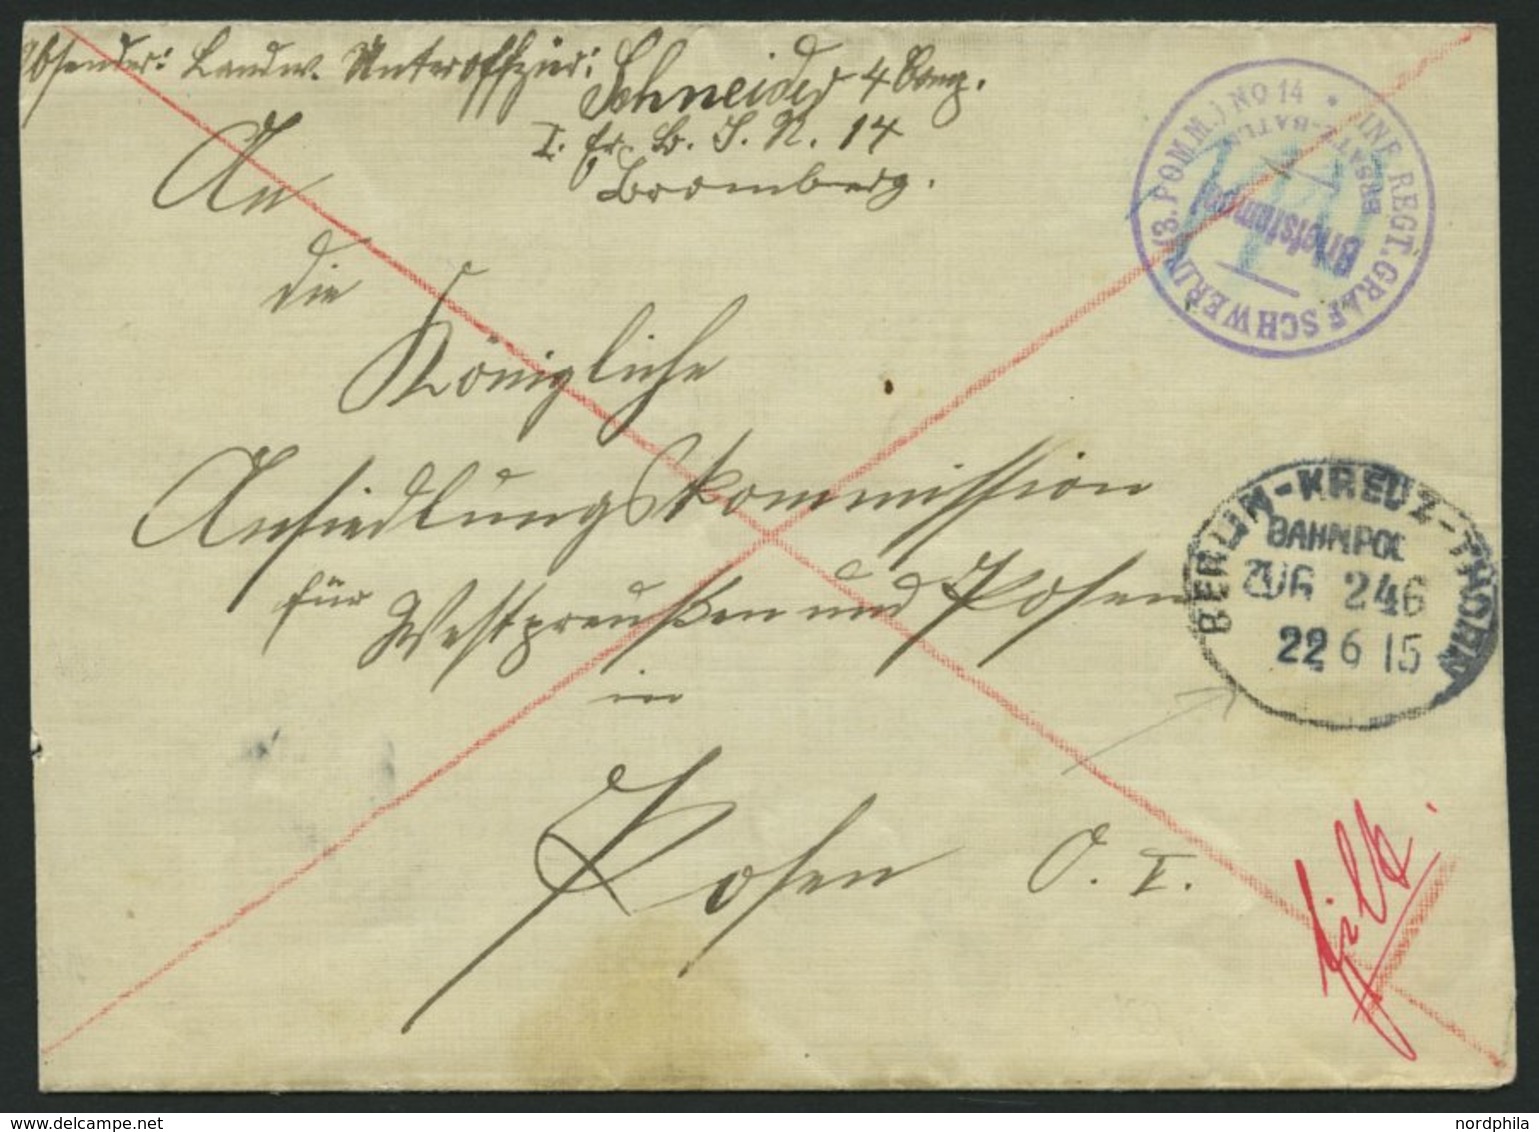 Absender: Landw. Unteroffizier: Schneider 4 Comp.
I. Ers. B. I. R. 14
Bromberg.
An
die
Königliche
Ansiedlungskommission
für Westpreußen und Posen
in
Posen O. I.
INF. REGT. GRAF SCHWERIN (3. POMM.) NO 14 *
ERSATZ-BATL.
Briefstempel
BERLIN-KREUZ-THORN
BAHNPOS
ZUG 246
22 6 15
Eilt.
www.delcampe.net
nordphila